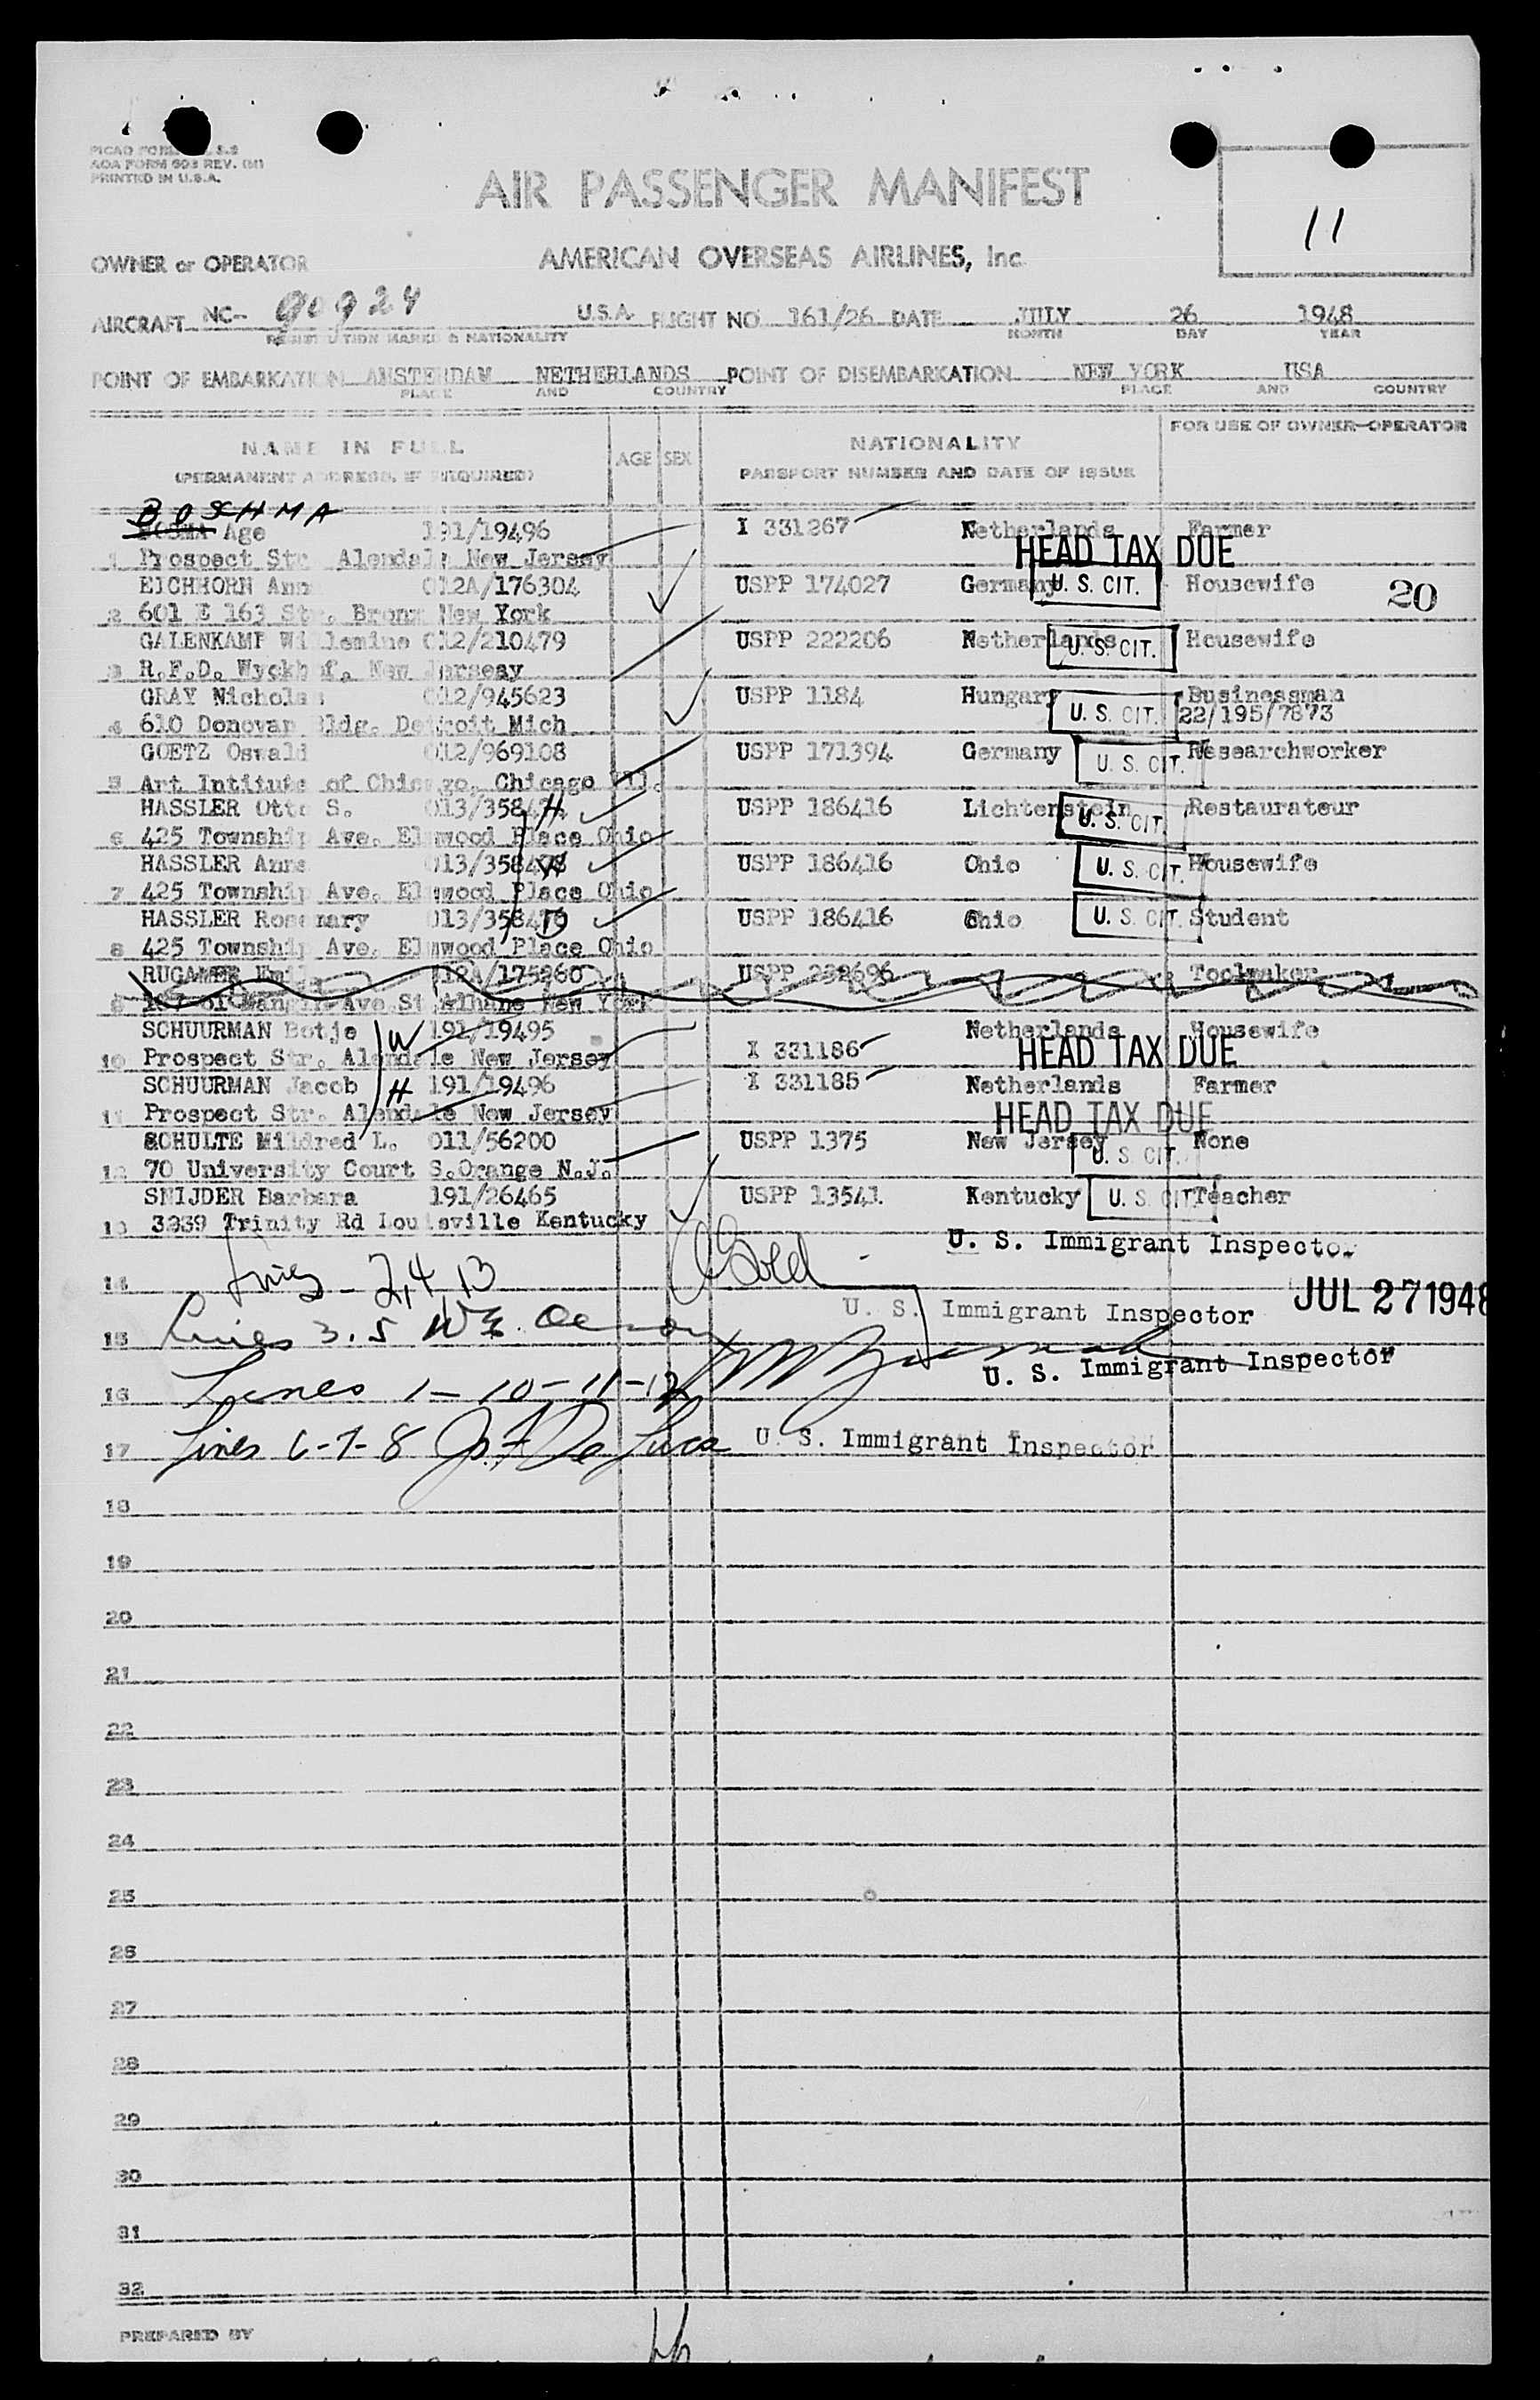 AOA FORM 603 REV. (M)
PRINTED IN U.S.A.
AIR PASSENGER MANIFEST
11
OWNER or OPERATOR AMERICAN OVERSEAS AIRLINES, Inc
AIRCRAFT NC- 90924 U.S.A. FLIGHT NO. 161/26 DATE JULY 26 1948
REGISTRATION MARKS & NATIONALITY MONTH DAY YEAR
POINT OF EMBARKATION AMSTERDAM NETHERLANDS POINT OF DISEMBARKATION NEW YORK USA
PLACE AND COUNTRY PLACE AND COUNTRY
NAME IN FULL AGE SEX NATIONALITY FOR USE OF OWNER-OPERATOR
(PERMANENT ADDRESS, IF REQUIRED) PASSPORT NUMBER AND DATE OF ISSUE
BOSHMA
Age 191/19496 I 331267 Netherlands Farmer
1 Prospect Str Alendale New Jersey HEAD TAX DUE
EICHHORN Ann 012A/176304 USPP 174027 Germany U. S. CIT. Housewife 20
2 601 E 163 Str. Bronx New York
GALENKAMP Willemine 012/210479 USPP 222206 Netherlands U. S. CIT. Housewife
3 R.F.D. Wyckhof, New Jerseay
GRAY Nicholas 012/945623 USPP 1184 Hungary U. S. CIT. Businessman
4 610 Donovan Bldg. Detroit Mich 22/195/7873
GOETZ Oswald 012/969108 USPP 171394 Germany U. S. CIT. Researchworker
5 Art Intitute of Chicago, Chicago Ill.
HASSLER Otto S. 013/358 H USPP 186416 Lichtenstein U. S. CIT. Restaurateur
6 425 Township Ave. Elmwood Place Ohio
HASSLER Anna 013/358 W USPP 186416 Ohio U. S. CIT. Housewife
7 425 Township Ave. Elmwood Place Ohio
HASSLER Rosemary 013/358 D USPP 186416 Ohio U. S. CIT. Student
8 425 Township Ave. Elmwood Place Ohio
RUGAMER 012A/175960 USPP Toolmaker
9 Ave St Albans New York
SCHUURMAN Botje W 191/19495 Netherlands Housewife
10 Prospect Str. Alendale New Jersey I 331186 HEAD TAX DUE
SCHUURMAN Jacob H 191/19496 I 331185 Netherlands Farmer
11 Prospect Str. Alendale New Jersey HEAD TAX DUE
SCHULTE Mildred L. 011/56200 USPP 1375 New Jersey U. S. CIT. None
12 70 University Court S.Orange N.J.
SNIJDER Barbara 191/26465 USPP 13541 Kentucky U. S. CIT. Teacher
13 3239 Trinity Rd Louisville Kentucky
U. S. Immigrant Inspector
14 lines - 2,4 13 Gold
JUL 27 1948
U. S. Immigrant Inspector
15 Lines 3.5
U. S. Immigrant Inspector
16 Lines 1-10-11-12
17 Lines 6-7-8 Jos. F. De Luca U. S. Immigrant Inspector
18
19
20
21
22
23
24
25
26
27
28
29
30
31
32
PREPARED BY